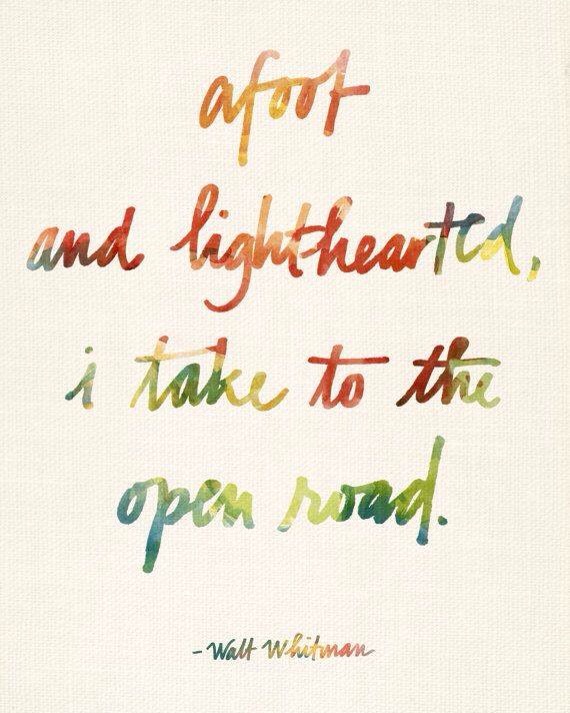 afoot
and light-hearted,
i take to the
open road.
- Walt Whitman